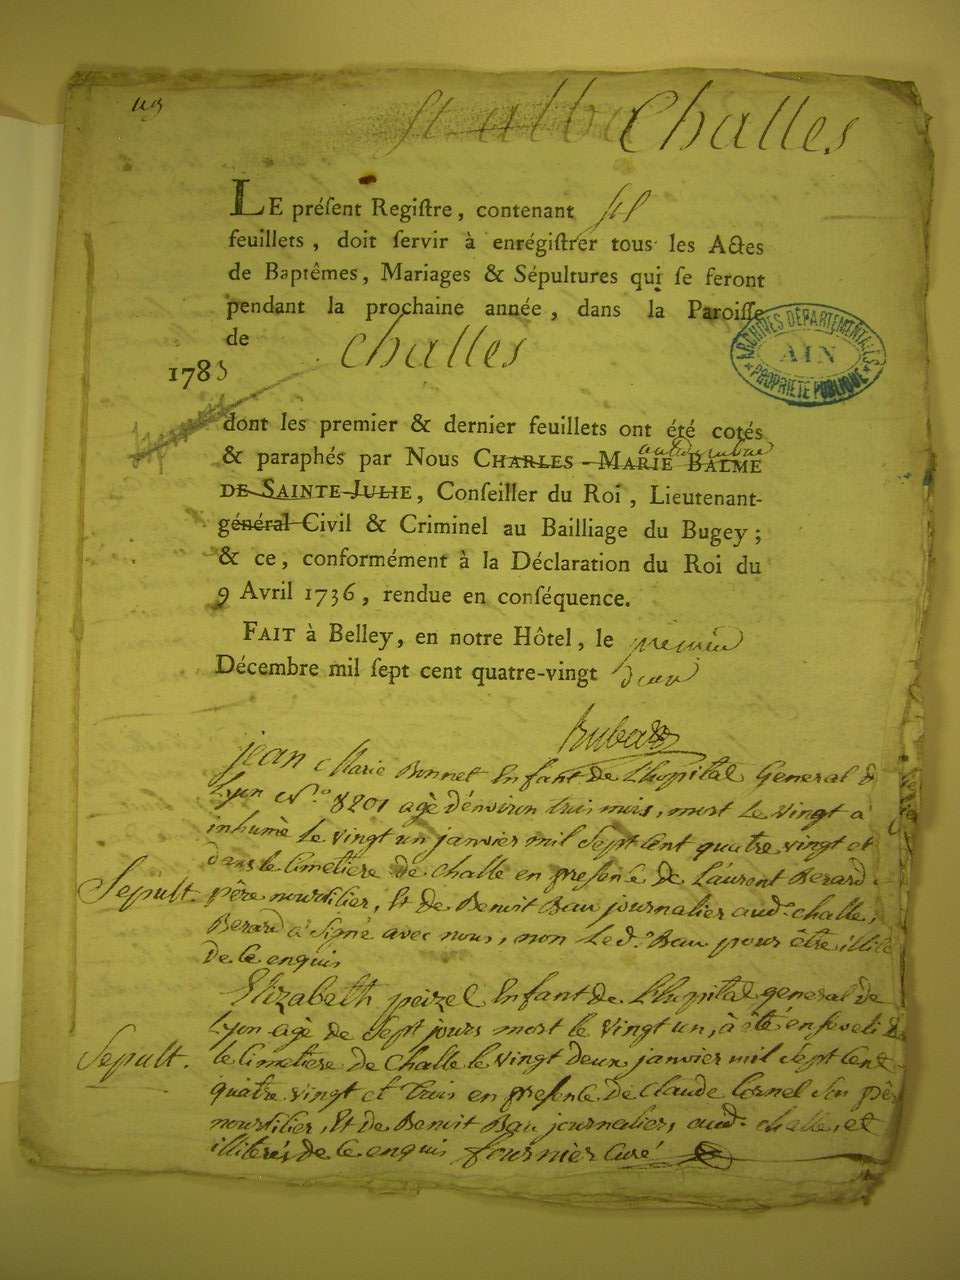 St alba Challes
LE préſent Regiſtre, contenant six
feuillets, doit ſervir à enrégiſtrer tous les Actes
de Baptêmes, Mariages & Sépultures qui ſe feront
pendant la prochaine année, dans la Paroiſſe
de Challes
ARCHIVES DÉPARTEMENTALES
AIN
PROPRIÉTÉ PUBLIQUE
1783
dont les premier & dernier feuillets ont été cotés
& paraphés par Nous CHARLES-MARIE BALME
DE SAINTE-JULIE, Conſeiller du Roi, Lieutenant-
général Civil & Criminel au Bailliage du Bugey;
& ce, conformément à la Déclaration du Roi du
9 Avril 1736, rendue en conſéquence.
FAIT à Belley, en notre Hôtel, le premier
Décembre mil ſept cent quatre-vingt deux
Rubat
jean Marie Bonnet Enfant de L'hopital General d
Lyon N.o 8201 agè d'environ trois mois, mort Le vingt a
inhumè le vingt un janvier mil Sept Cent quatre vingt et
dans le Cimetiere de Challe en presence de Laurent Berard
Sepult. père nourdilier, Et de Benoit Bau journalier aud. challe,
Berard a Signè avec nous, non Led. Bau pour être illité
De Ce enquis
Elizabeth peizel Enfant de L'hopital general de
Lyon agè de Sept jours mort le vingt un, à été enseveli d
Sepult. le Cimetiere de Challe le vingt deux janvier mil Sept Cent
quatre vingt et trois en presence de Claude Cornel Son pèr
nourdilier, Et de Benoit Bau journalier, aud. challe, et
illiterés de Ce enquis fournier Curé